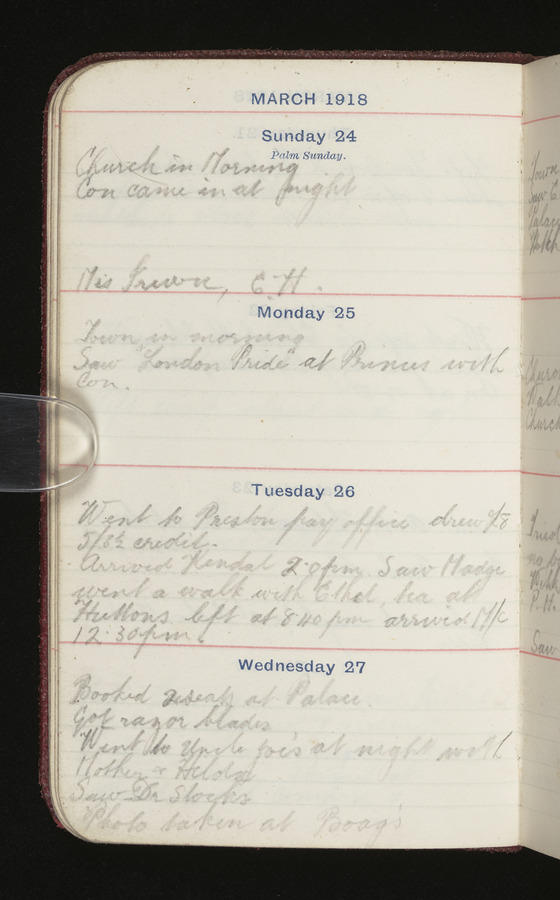 MARCH 1918
Sunday 24
Palm Sunday.
Church in Morning
Con came in at night
Mis E. H.
Monday 25
Town in morning
Saw "London Pride" at Princes with
Con.
Tuesday 26
Went to Preston pay office drew £8
credit.
Arrived Kendal 2.0pm. Saw Madge
went a walk with Ethel, tea at
Huttons left at 8.40 pm arrived M/c
12.30pm
Wednesday 27
Booked 2 seats at Palace.
Got razor blades
Went to Uncle Joe's at night with
Mother & Hilda
Saw Dr Stocks
Photo taken at Boag's